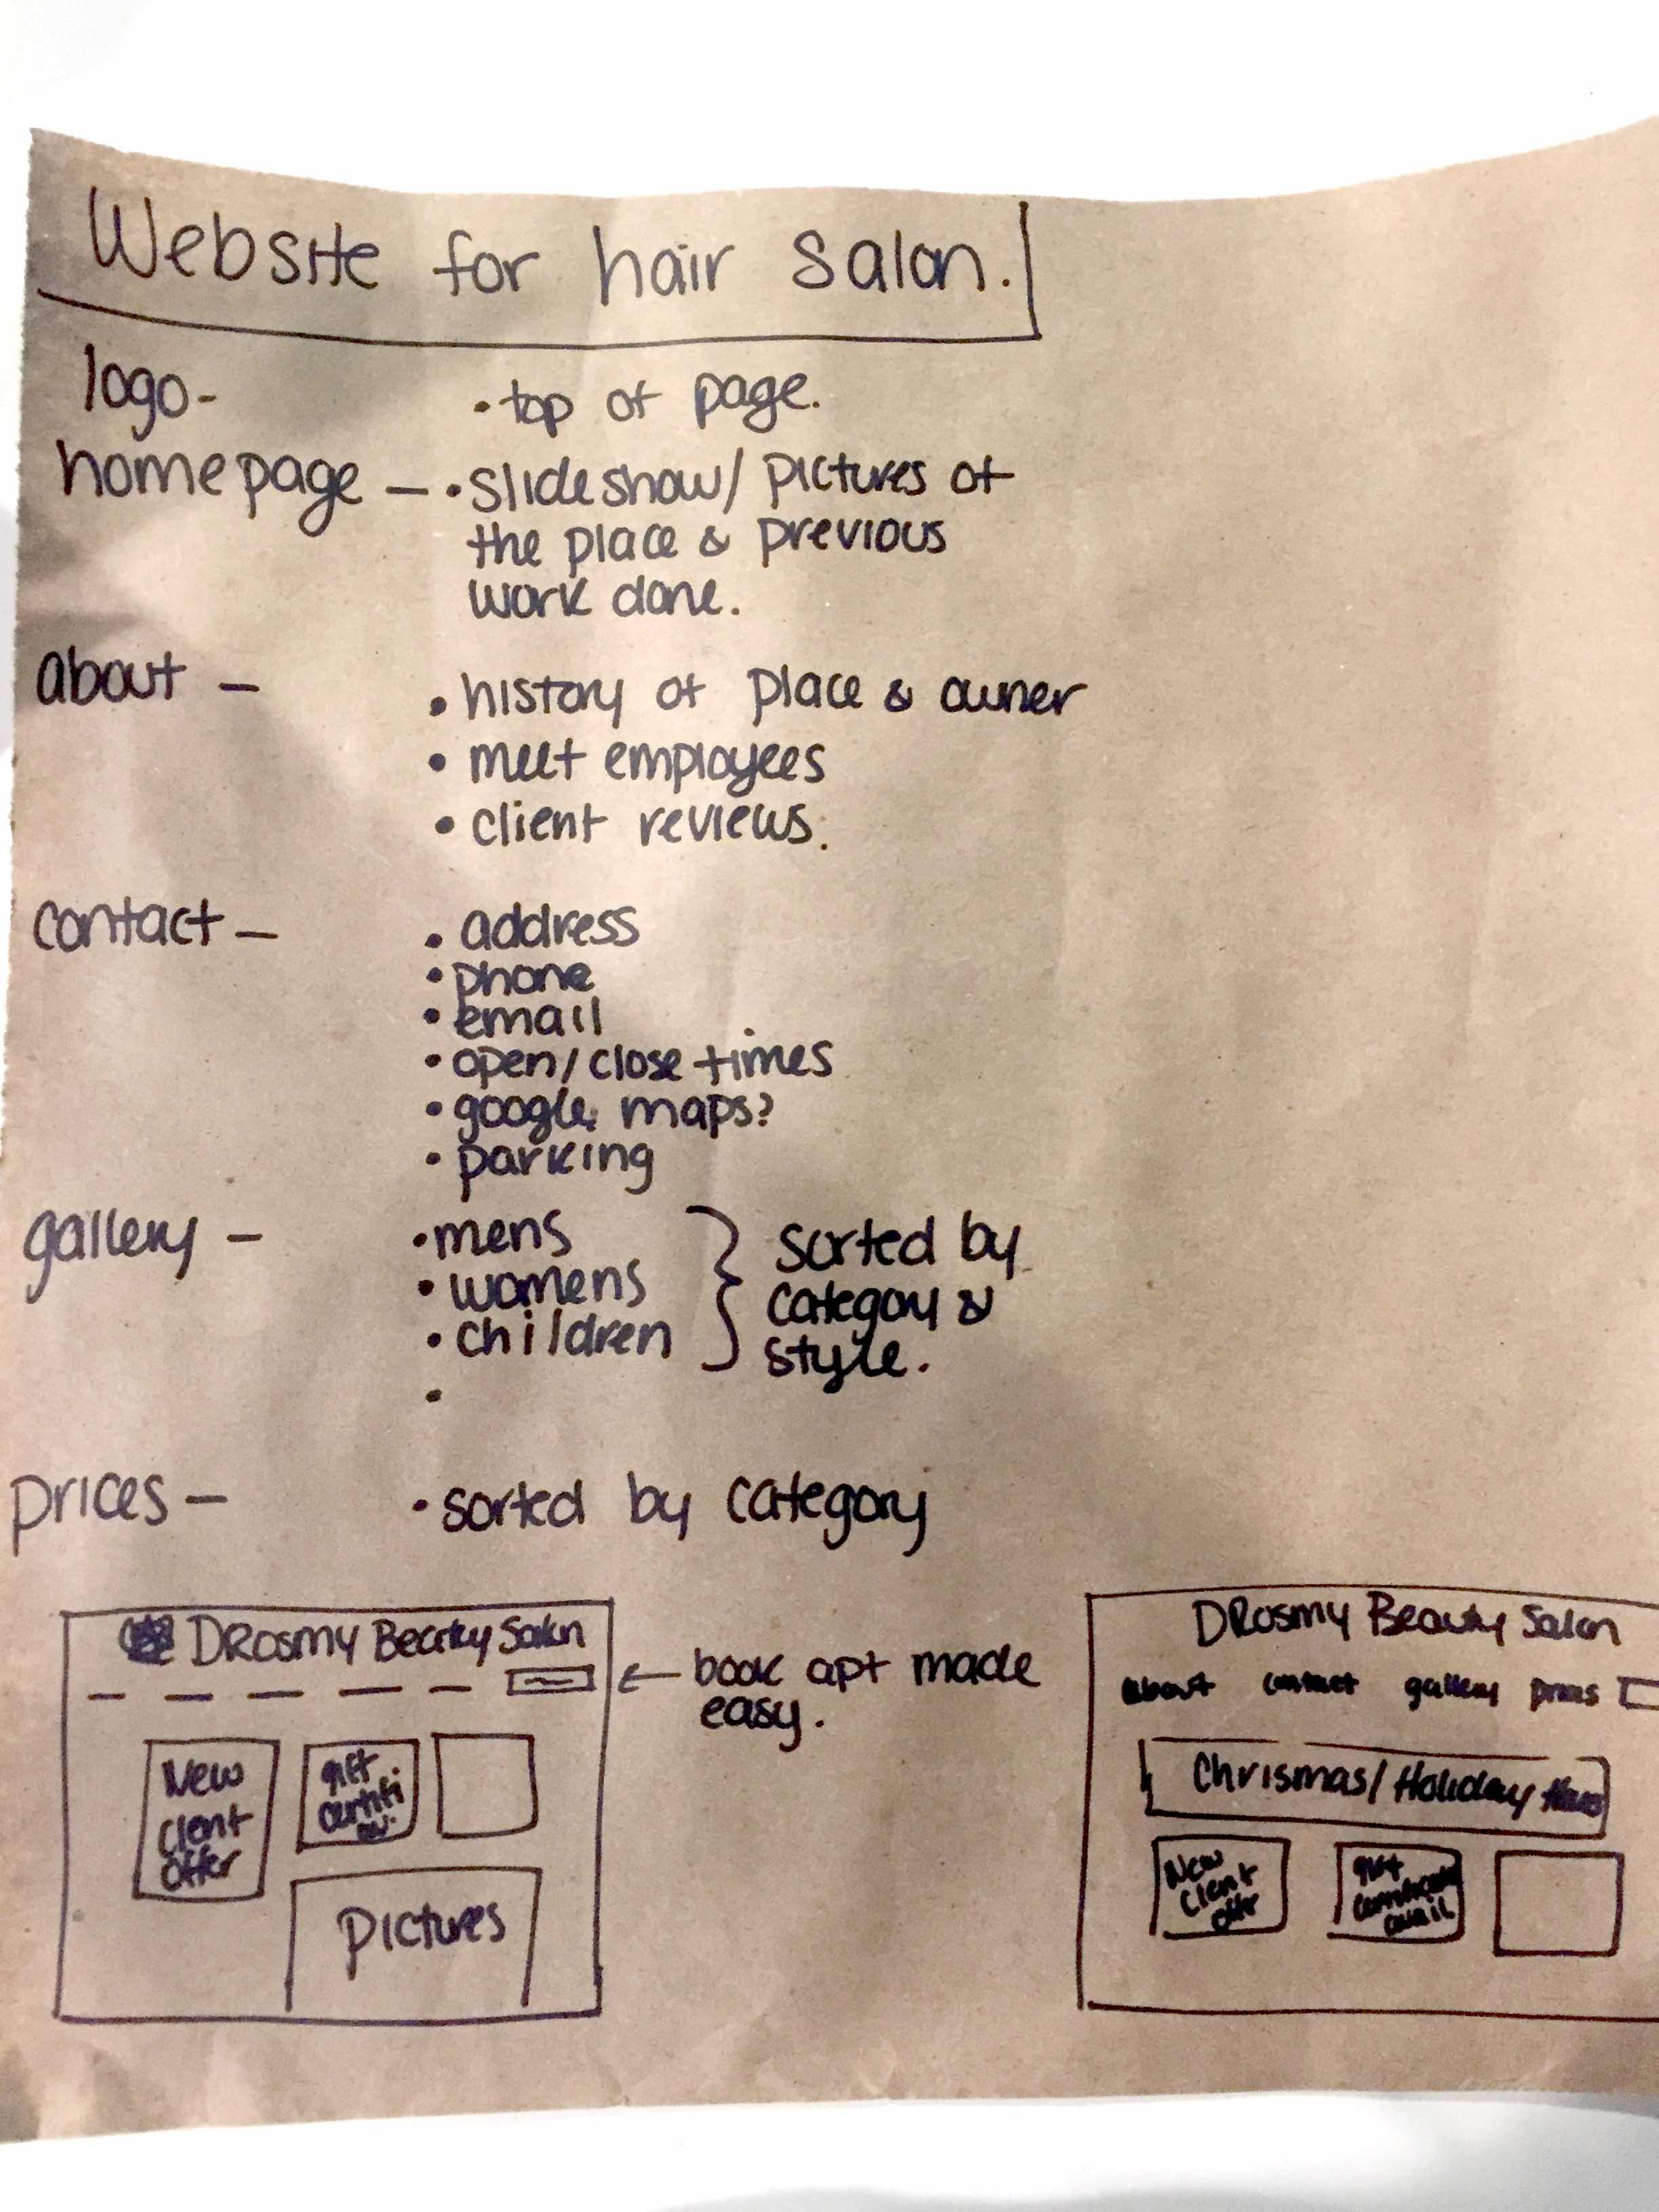 Website for hair salon.
logo- • top of page.
homepage – • slideshow/ pictures of
the place & previous
work done.
about – • history of place & owner
• meet employees
• client reviews.
contact – • address
• phone
• email
• open/close times
• google maps?
• parking
gallery – • mens
• womens
• children
sorted by
category &
style.
prices – • sorted by category
DRosmy Beauty Salon
book apt made
easy.
New
client
offer
gift
Pictures
DRosmy Beauty Salon
about contact gallery prices
Chrismas/Holiday
New
client
offer
gift
avail.